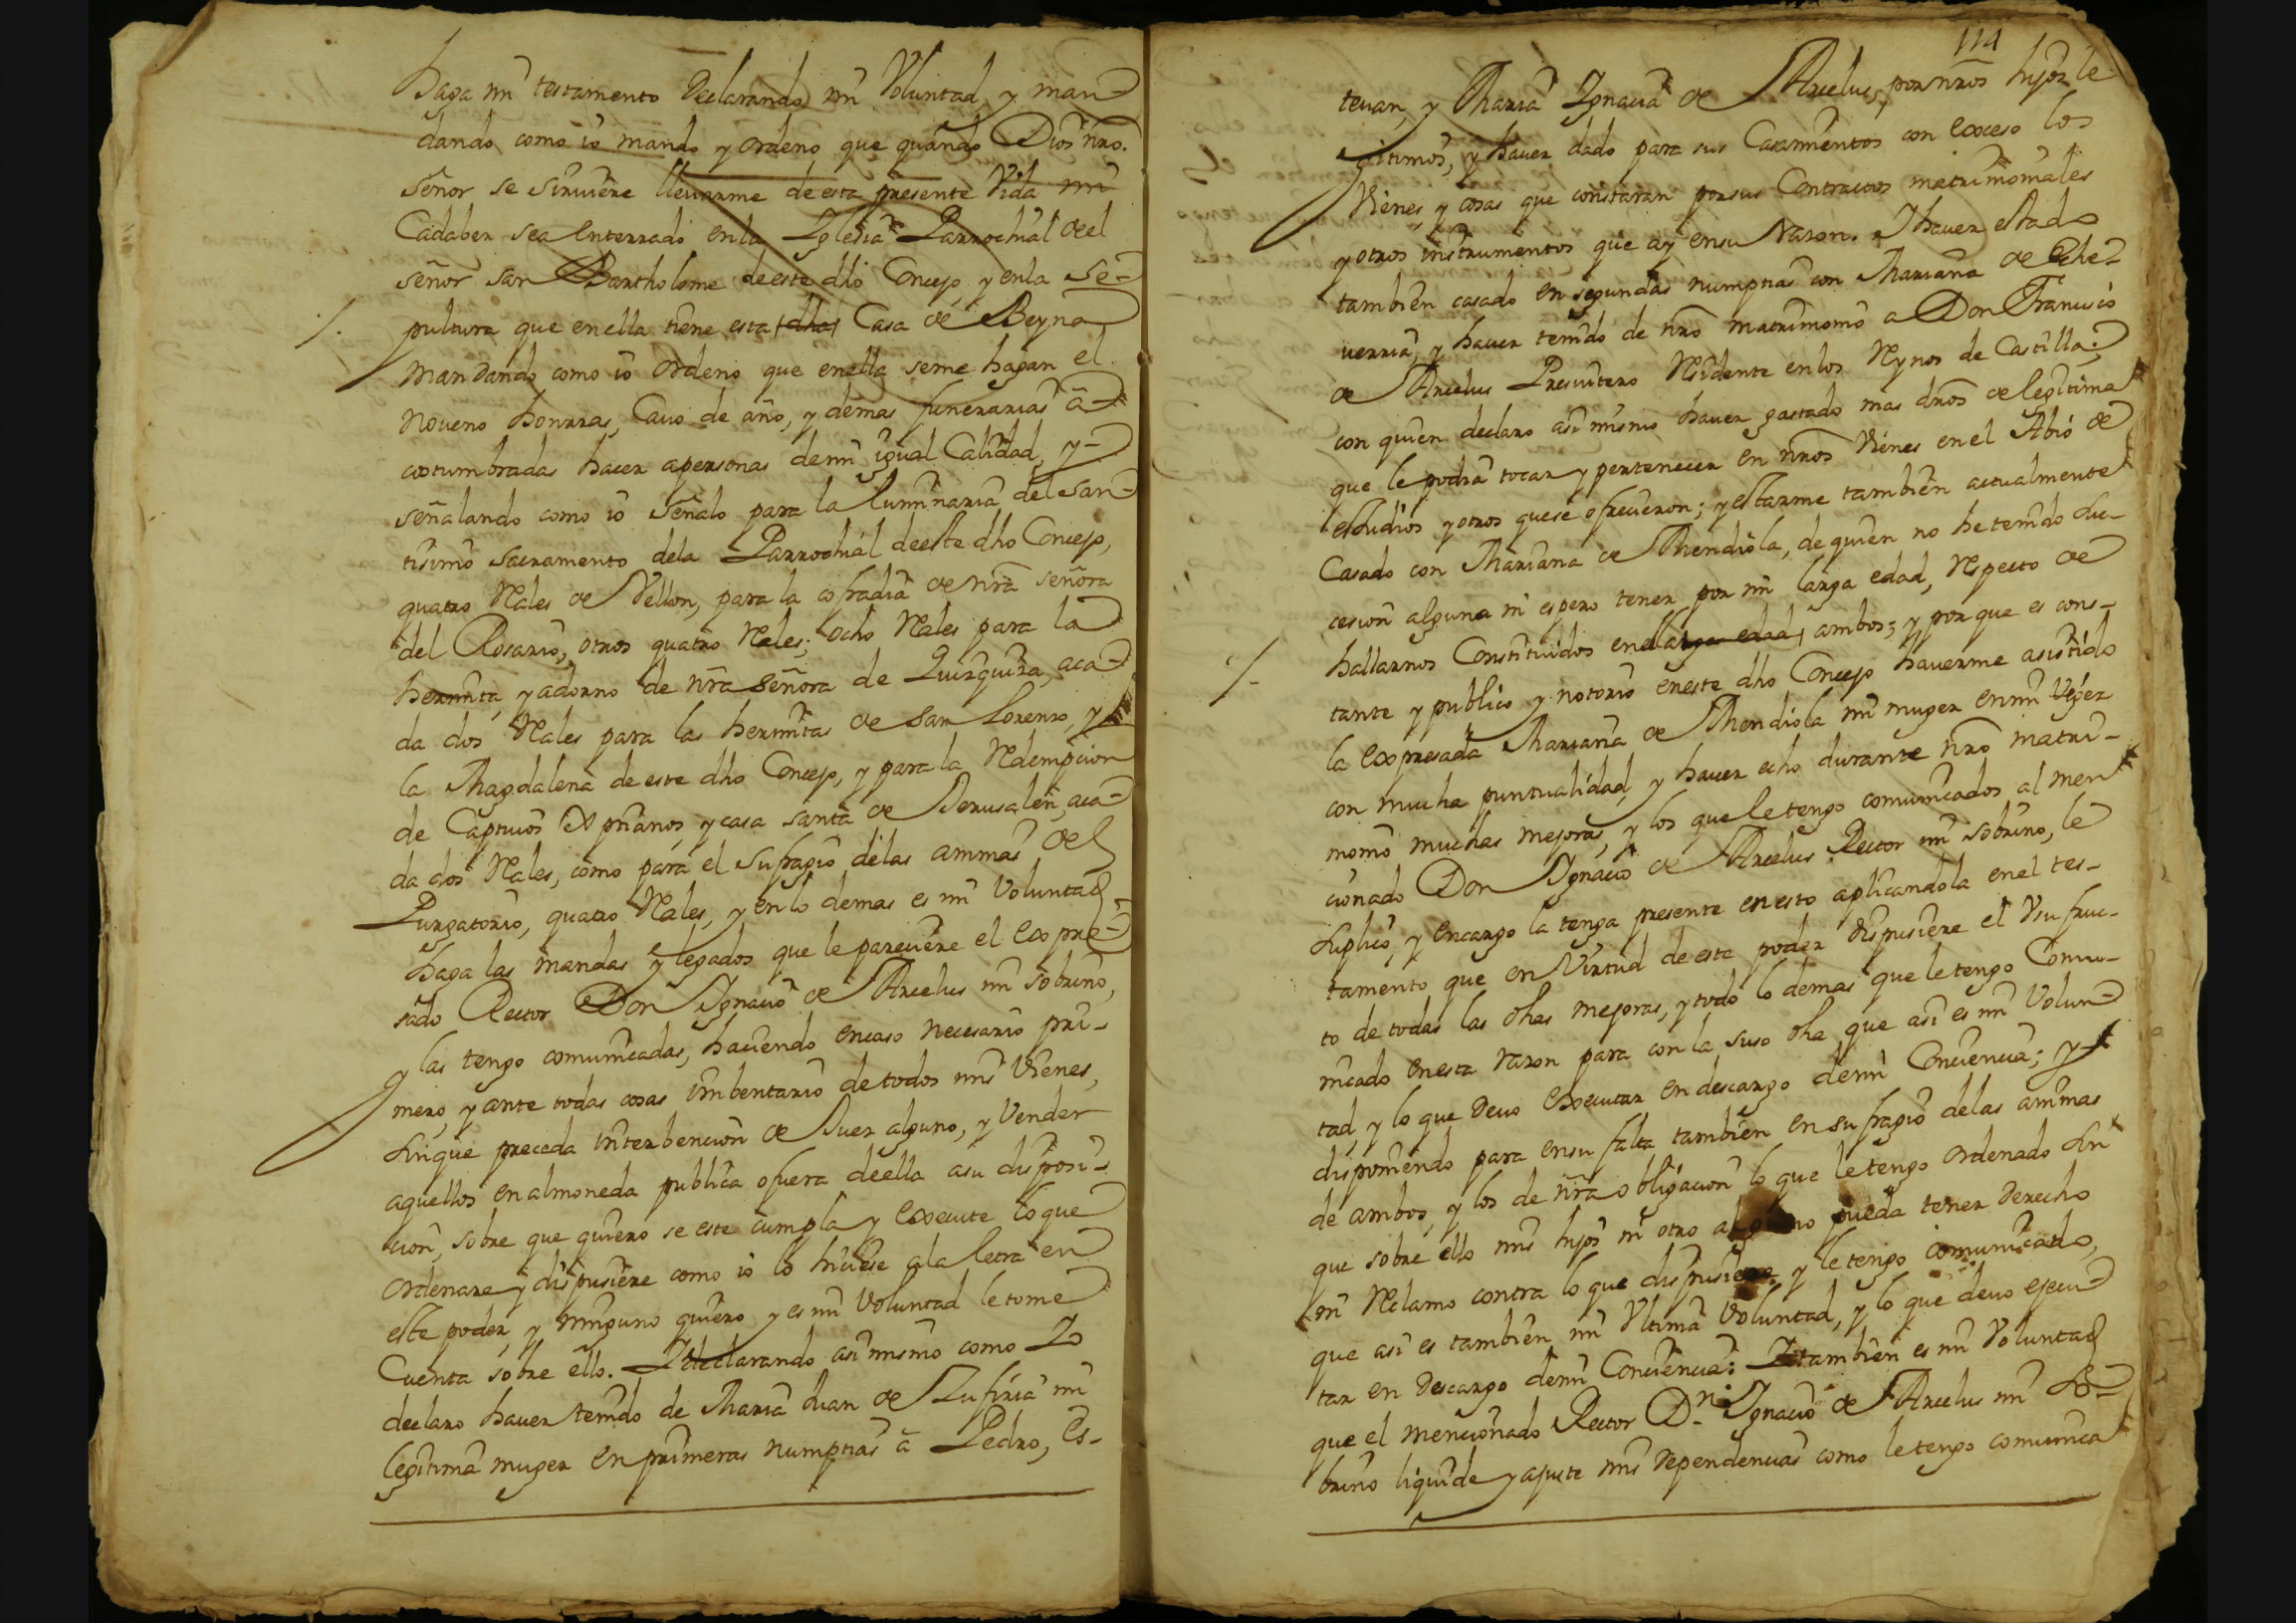 haga mi testamento declarando mi Voluntad, y man-
dando como io mando y ordeno que quando Dios nro.
señor se sirviere llevarme de esta presente Vida mi
Cadaber sea enterrado en la Iglesia Parrochial de el
señor san Bartholome de este dho Concejo, y en la se-
pultura que en ella tiene esta dha Casa de Reyno
mandando como io ordeno que en ella seme hagan el
noveno honrras, Cavo de año, y demas funerarias a-
costumbradas hacer a personas demi igual Calidad, y-
señalando como io señalo para la luminaria del san-
tisimo sacramento dela Parrochial deeste dho Concejo,
quatro Rales de Vellon, para la cofradia de nra señora
del Rosario, otros quatro Rales; ocho Rales para la
hermita, y adorno de nra señora de Quirquiza, aca-
da dos Rales para las hermitas de san Lorenzo, y
la Magdalena de este dho Concejo, y para la Redempcion
de Captivos Xprianos, y casa santa de Jerusalen, aca-
da dos Rales, como para el sufragio delas animas del
Purgatorio, quatro Rales, y en lo demas es mi Voluntad
haga las mandas y legados que le pareciere el expre-
sado Rector Don Ignacio de Arcelus mi sobrino,
y las tengo comunicadas, haciendo encaso necesario pri-
mero, y ante todas cosas imbentario de todos mis Vienes,
sin que preceda interbencion de Juez alguno, y Vender
aquellos en almoneda publica o fuera de ella asu disposi-
cion, sobre que quiero se este cumpla y execute lo que
ordenare y dispusiere como io lo hiciese ala letra en
este poder, y ninguno quiero y es mi voluntad le tome
Cuenta sobre ello. I declarando asi mismo como Io
declaro haver tenido de Maria Juan de mi
legitima muger en primeras numptias a Pedro, Es-
114
tevan, y Maria Ignacia de Arcelus, por nros hijos le-
gitimos, y haver dado para sus Casamientos con exceso los
Vienes, y cosas que constaran por sus Contractos matrimoniales
y otros instrumentos que ay en su razon. I haver estado
tambien casado en segundas numptias con Mariana de Eche-
verria, y haver tenido de nro matrimonio a Don Francisco
de Arcelus Presvitero Residente en los Reynos de Castilla;
con quien declaro asi mismo haver gastado mas dros de legitima
que le podra tocar y pertenecer en nros Vienes en el Abio de
estudios y otros que se ofrecieron; y estarme tambien actualmente
Casado con Mariana de Mendiola, de quien no he tenido suc-
cesion alguna ni espero tener por mi larga edad, Respecto de
hallarnos Constituidos en ella larga edad ambos; y por que es cons-
tante y publico y notorio en este dho Concejo haverme asistido
la expresada Mariana de Mendiola mi muger en mi Vejez
con mucha puntualidad, y haver echo durante nro matri-
monio muchas mejoras, y los que le tengo comunicados al men
cionado Don Ignacio de Arcelus Rector mi sobrino, le
suplico, y encargo la tenga presente en esto aplicandola en el tes-
tamento que en Virtud de este poder dispusiere el Vsufruc-
to de todas las dhas mejoras, y todo lo demas que le tengo Comu-
nicado en esta razon para con la suso dha, que asi es mi Volun-
tad, y lo que devo executar en descargo demi Conciencia; y
disponiendo para en su falta tambien en sufragio delas animas
de ambos, y los de nra obligacion lo que le tengo ordenado sin
que sobre ello mis hijos ni otro alguno pueda tener derecho
ni Reclamo contra lo que dispusiere y le tengo comunicado,
que asi es tambien mi Vltima voluntad, y lo que devo ejecu-
tar en descargo demi Conciencia: I tambien es mi Voluntad
que el mencionado Rector Dn. Ignacio de Arcelus mi so-
brino liquide y ajuste mis dependencias como le tengo comunica